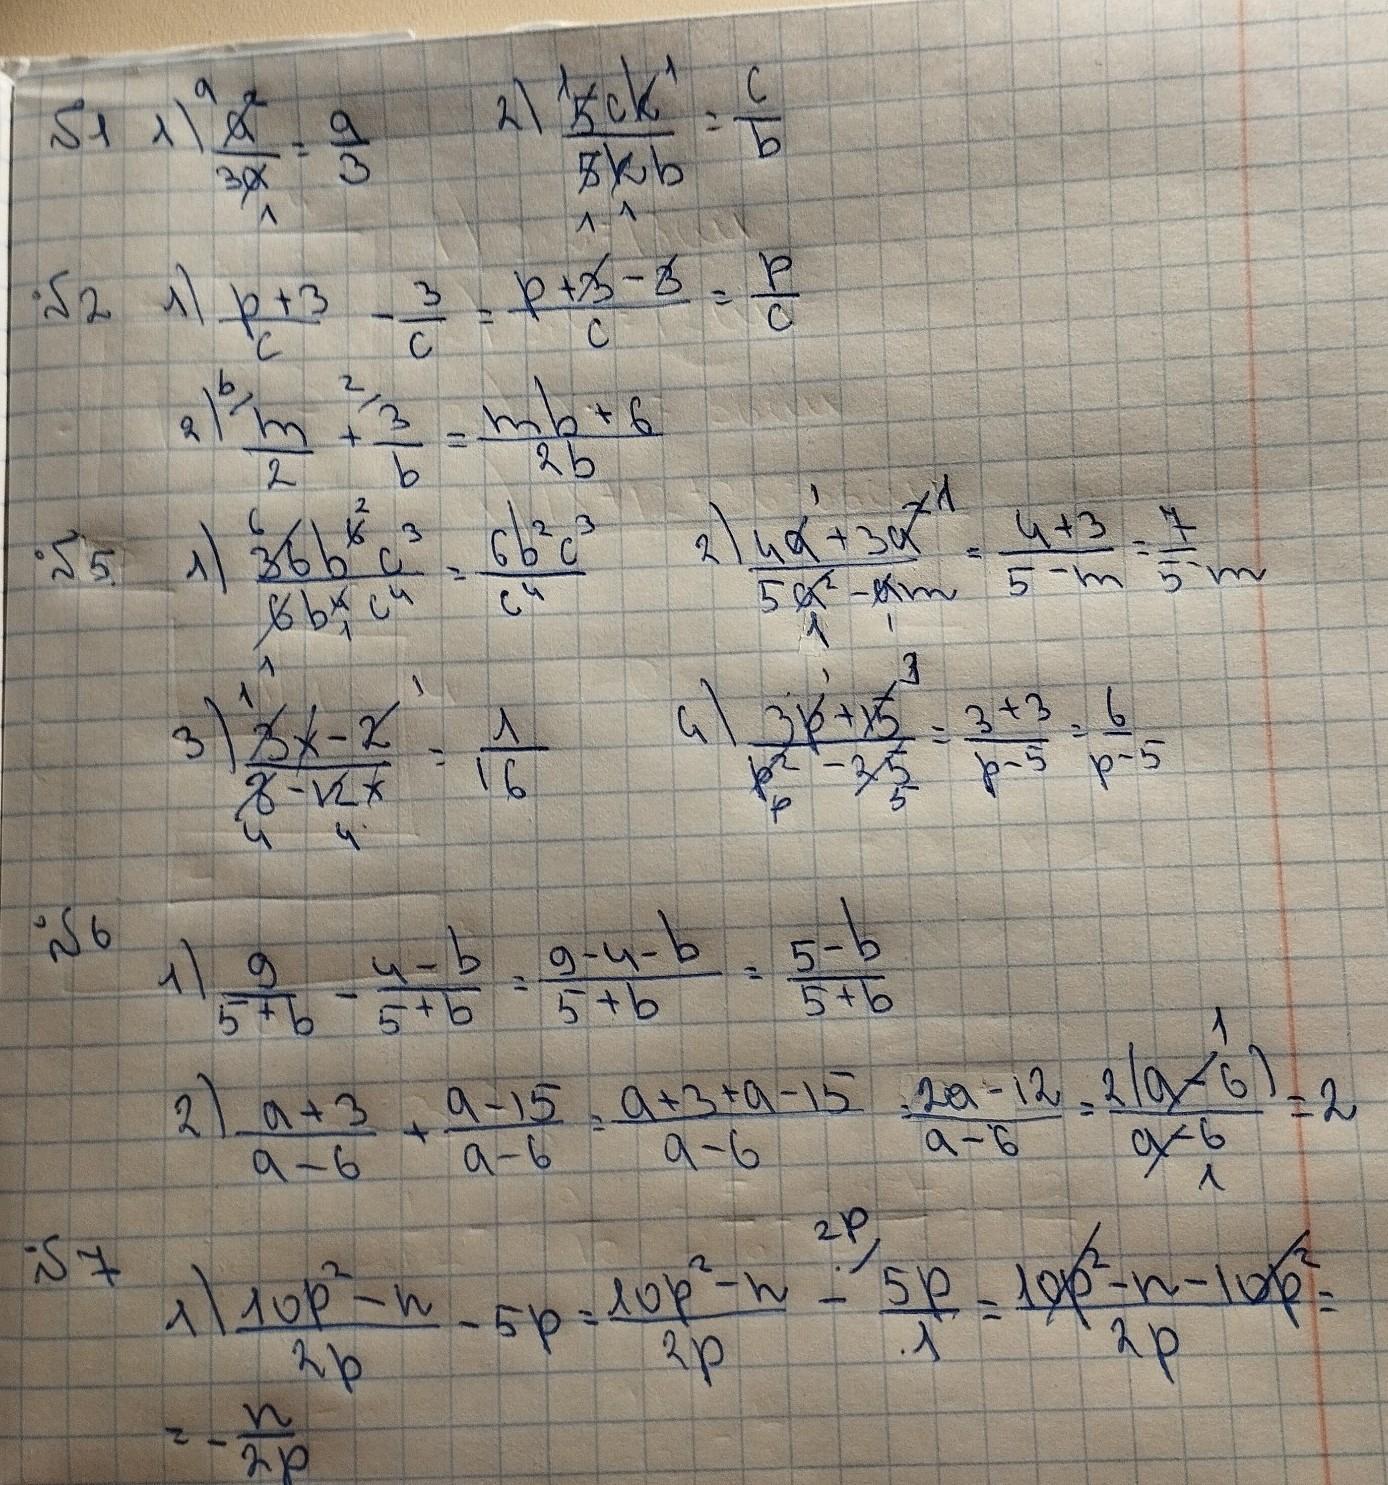 №1 1) a²/3a = a/3 2) 5ck/5kb = c/b
№2 1) (p+3)/c - 3/c = (p+3-3)/c = p/c
2) m/2 + 3/b = (mb+6)/2b
№5 1) 36b⁶c³/6b⁴c⁴ = 6b²c³/c⁴ 2) (4a+3a)/(5a²-am) = (4+3)/(5-m) = 7/(5-m)
3) (3x-2)/(8-12x) = 1/16 4) (3p+15)/(p²-25) = (3+3)/(p-5) = 6/(p-5)
№6
1) 9/(5+b) - (4-b)/(5+b) = (9-4-b)/(5+b) = (5-b)/(5+b)
2) (a+3)/(a-6) + (a-15)/(a-6) = (a+3+a-15)/(a-6) = (2a-12)/(a-6) = 2(a-6)/(a-6) = 2
№7
1) (10p²-n)/2p - 5p = (10p²-n)/2p - 5p/1 = (10p²-n-10p²)/2p =
= -n/2p